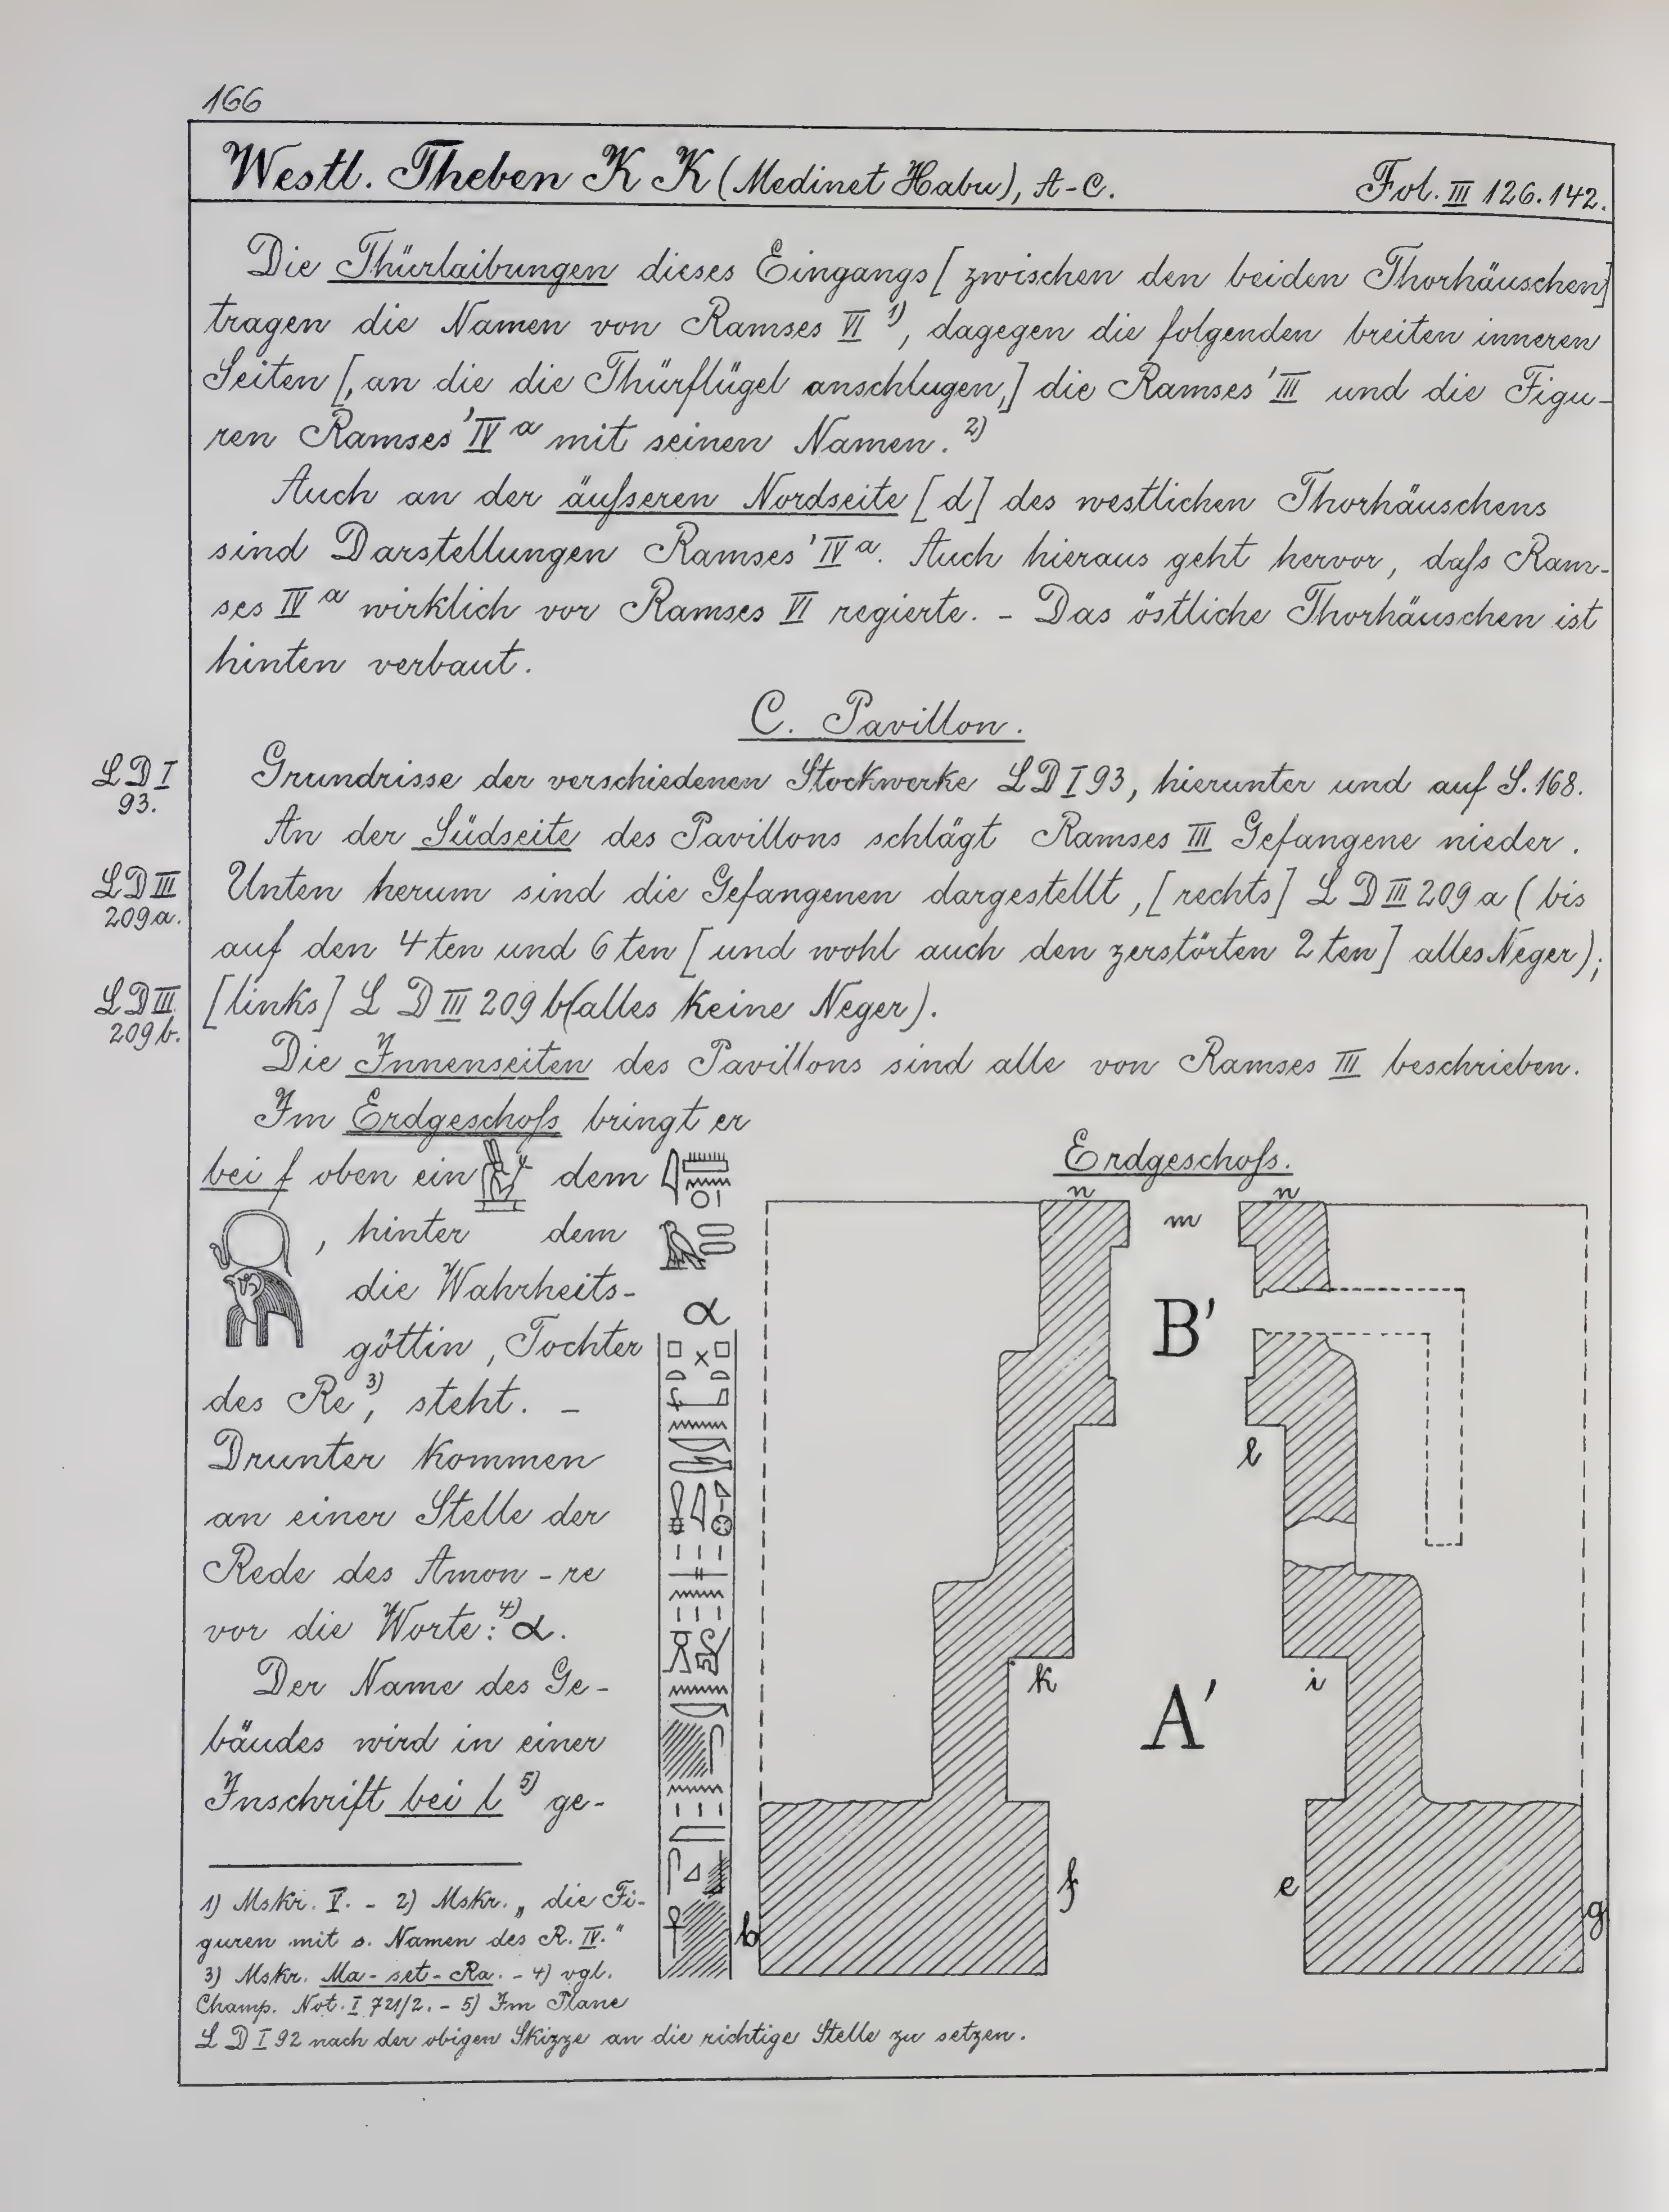 166
Westl. Theben K K (Medinet Habu), A-C. Fol. III 126.142.
Die Thürlaibungen dieses Eingangs [zwischen den beiden Thorhäuschen]
tragen die Namen von Ramses VI 1), dagegen die folgenden breiten inneren
Seiten [, an die die Thürflügel anschlugen,] die Ramses' III und die Figu-
ren Ramses' IVa mit seinen Namen. 2)
Auch an der äußeren Nordseite [d] des westlichen Thorhäuschens
sind Darstellungen Ramses' IVa. Auch hieraus geht hervor, daß Ram-
ses IVa wirklich vor Ramses VI regierte. - Das östliche Thorhäuschen ist
hinten verbaut.
C. Pavillon.
LD I
93.
Grundrisse der verschiedenen Stockwerke LD I 93, hierunter und auf S. 168.
An der Südseite des Pavillons schlägt Ramses III Gefangene nieder.
LD III
209a.
Unten herum sind die Gefangenen dargestellt, [rechts] LD III 209 a (bis
auf den 4ten und 6ten [und wohl auch den zerstörten 2ten] alles Neger);
LD III
209b.
[links] LD III 209 b (alles keine Neger).
Die Innenseiten des Pavillons sind alle von Ramses III beschrieben.
Im Erdgeschoß bringt er
bei f oben ein dem
, hinter dem
die Wahrheits-
göttin, Tochter
des Re 3), steht. -
Drunter kommen
an einer Stelle der
Rede des Amon-re
vor die Worte: 4) α.
Der Name des Ge-
bäudes wird in einer
Inschrift bei l 5) ge-
α
Erdgeschoß.
n n
m
B'
l
k i
A'
f e
b g
1) Mskr. V. - 2) Mskr. „die Fi-
guren mit s. Namen des R. IV."
3) Mskr. Ma-set-Ra. - 4) vgl.
Champ. Not. I 721/2. - 5) Im Plane
LD I 92 nach der obigen Skizze an die richtige Stelle zu setzen.